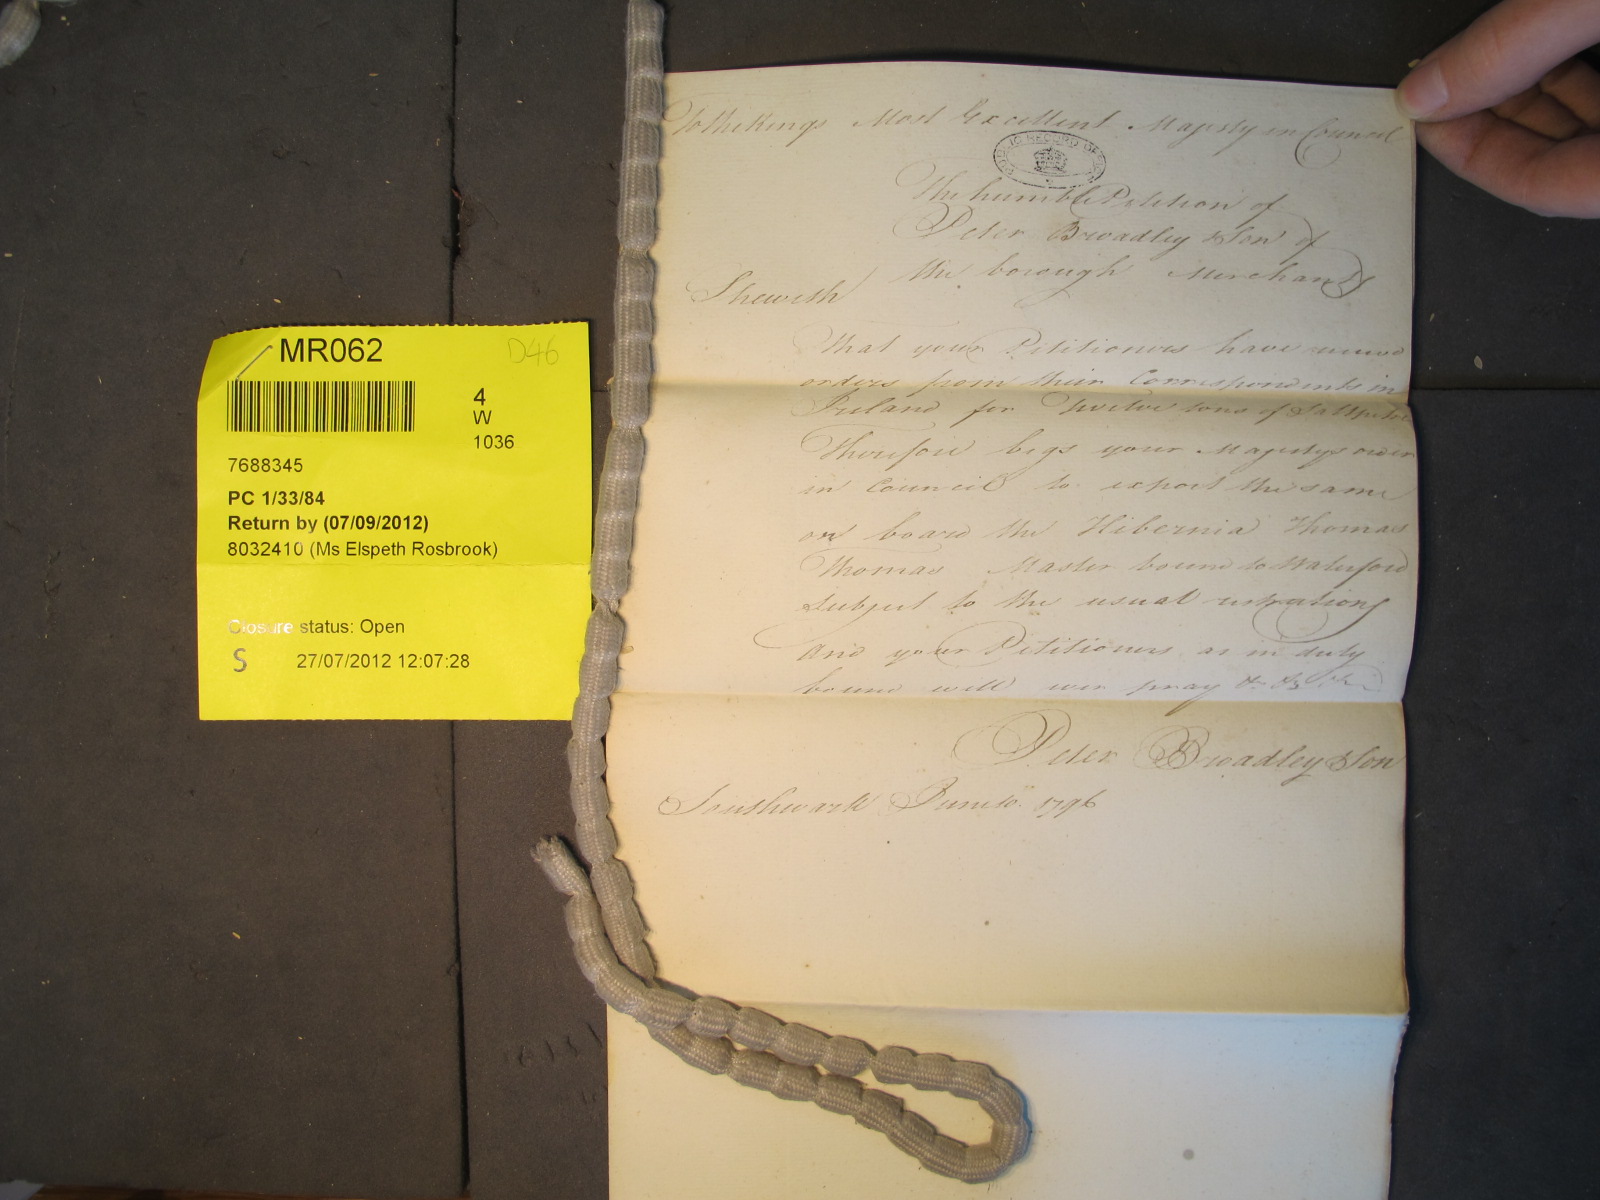 MR062
D46
4
W
1036
7688345
PC 1/33/84
Return by (07/09/2012)
8032410 (Ms Elspeth Rosbrook)
Closure status: Open
S
27/07/2012 12:07:28
To the Kings Most Excellent Majesty in Council
PUBLIC RECORD OFFICE
The humble Petition of
Peter Broadley & Son of
the borough Merchants
Sheweth
That your Petitioners have
orders from their Correspondents in
Ireland for Twelve tons of Saltpetre
Therefore begs your Majestys order
in Council to export the same
on board the Hibernia Thomas
Thomas Master bound to Waterford
Subject to the usual restrictions
And your Petitioners as in duty
bound will ever pray &c &c
Peter Broadley & Son
Southwark June 10. 1796